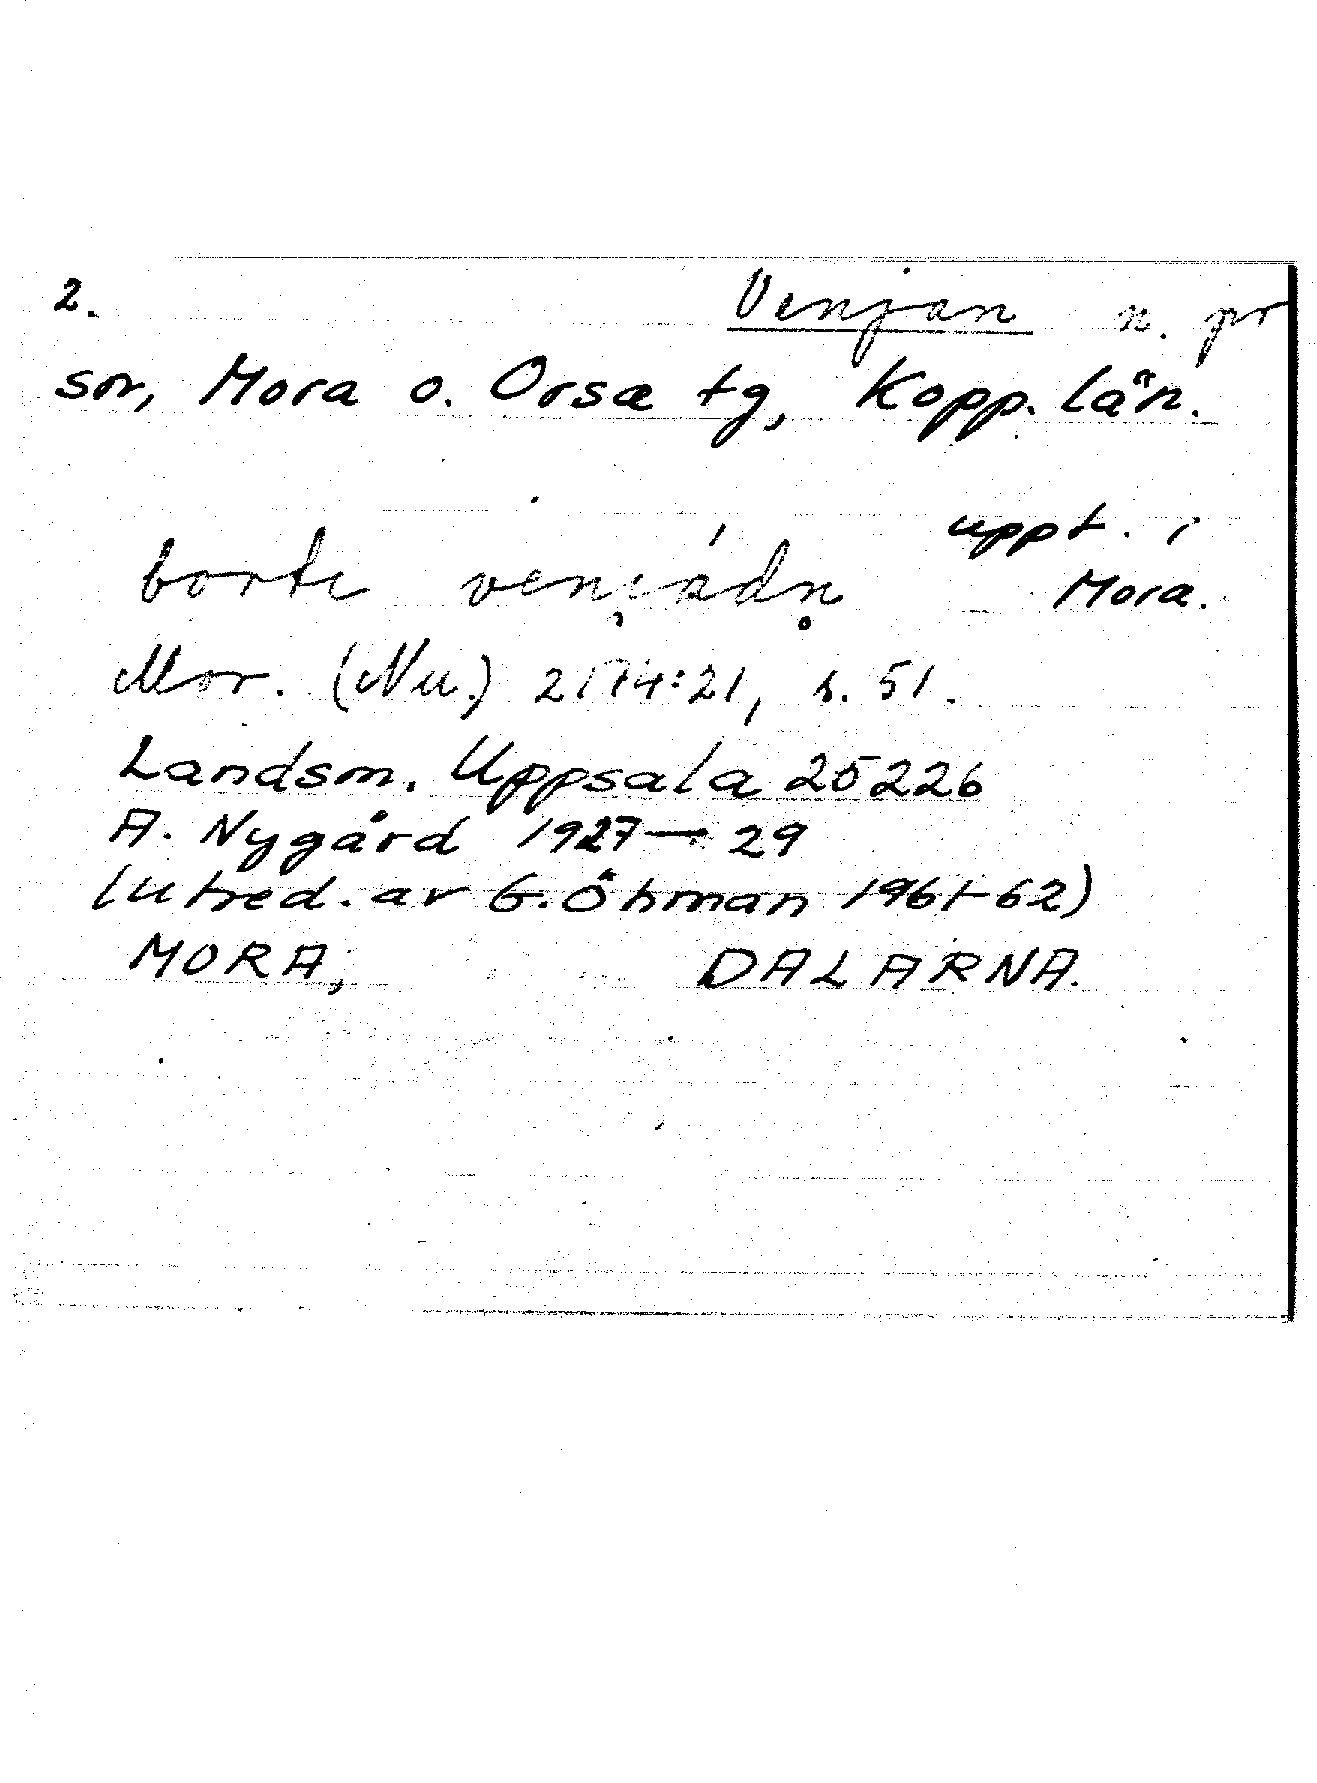 2. Venjan n. pr
sn, Mora o. Orsa tg, Kopp. län.
uppt. i
borti
Mora.
Mor. (Nu.) 2174:21, s. 51.
Landsm. Uppsala 25226
A. Nygård 1927—29
(utred. av G. Öhman 1961-62)
MORA, DALARNA.